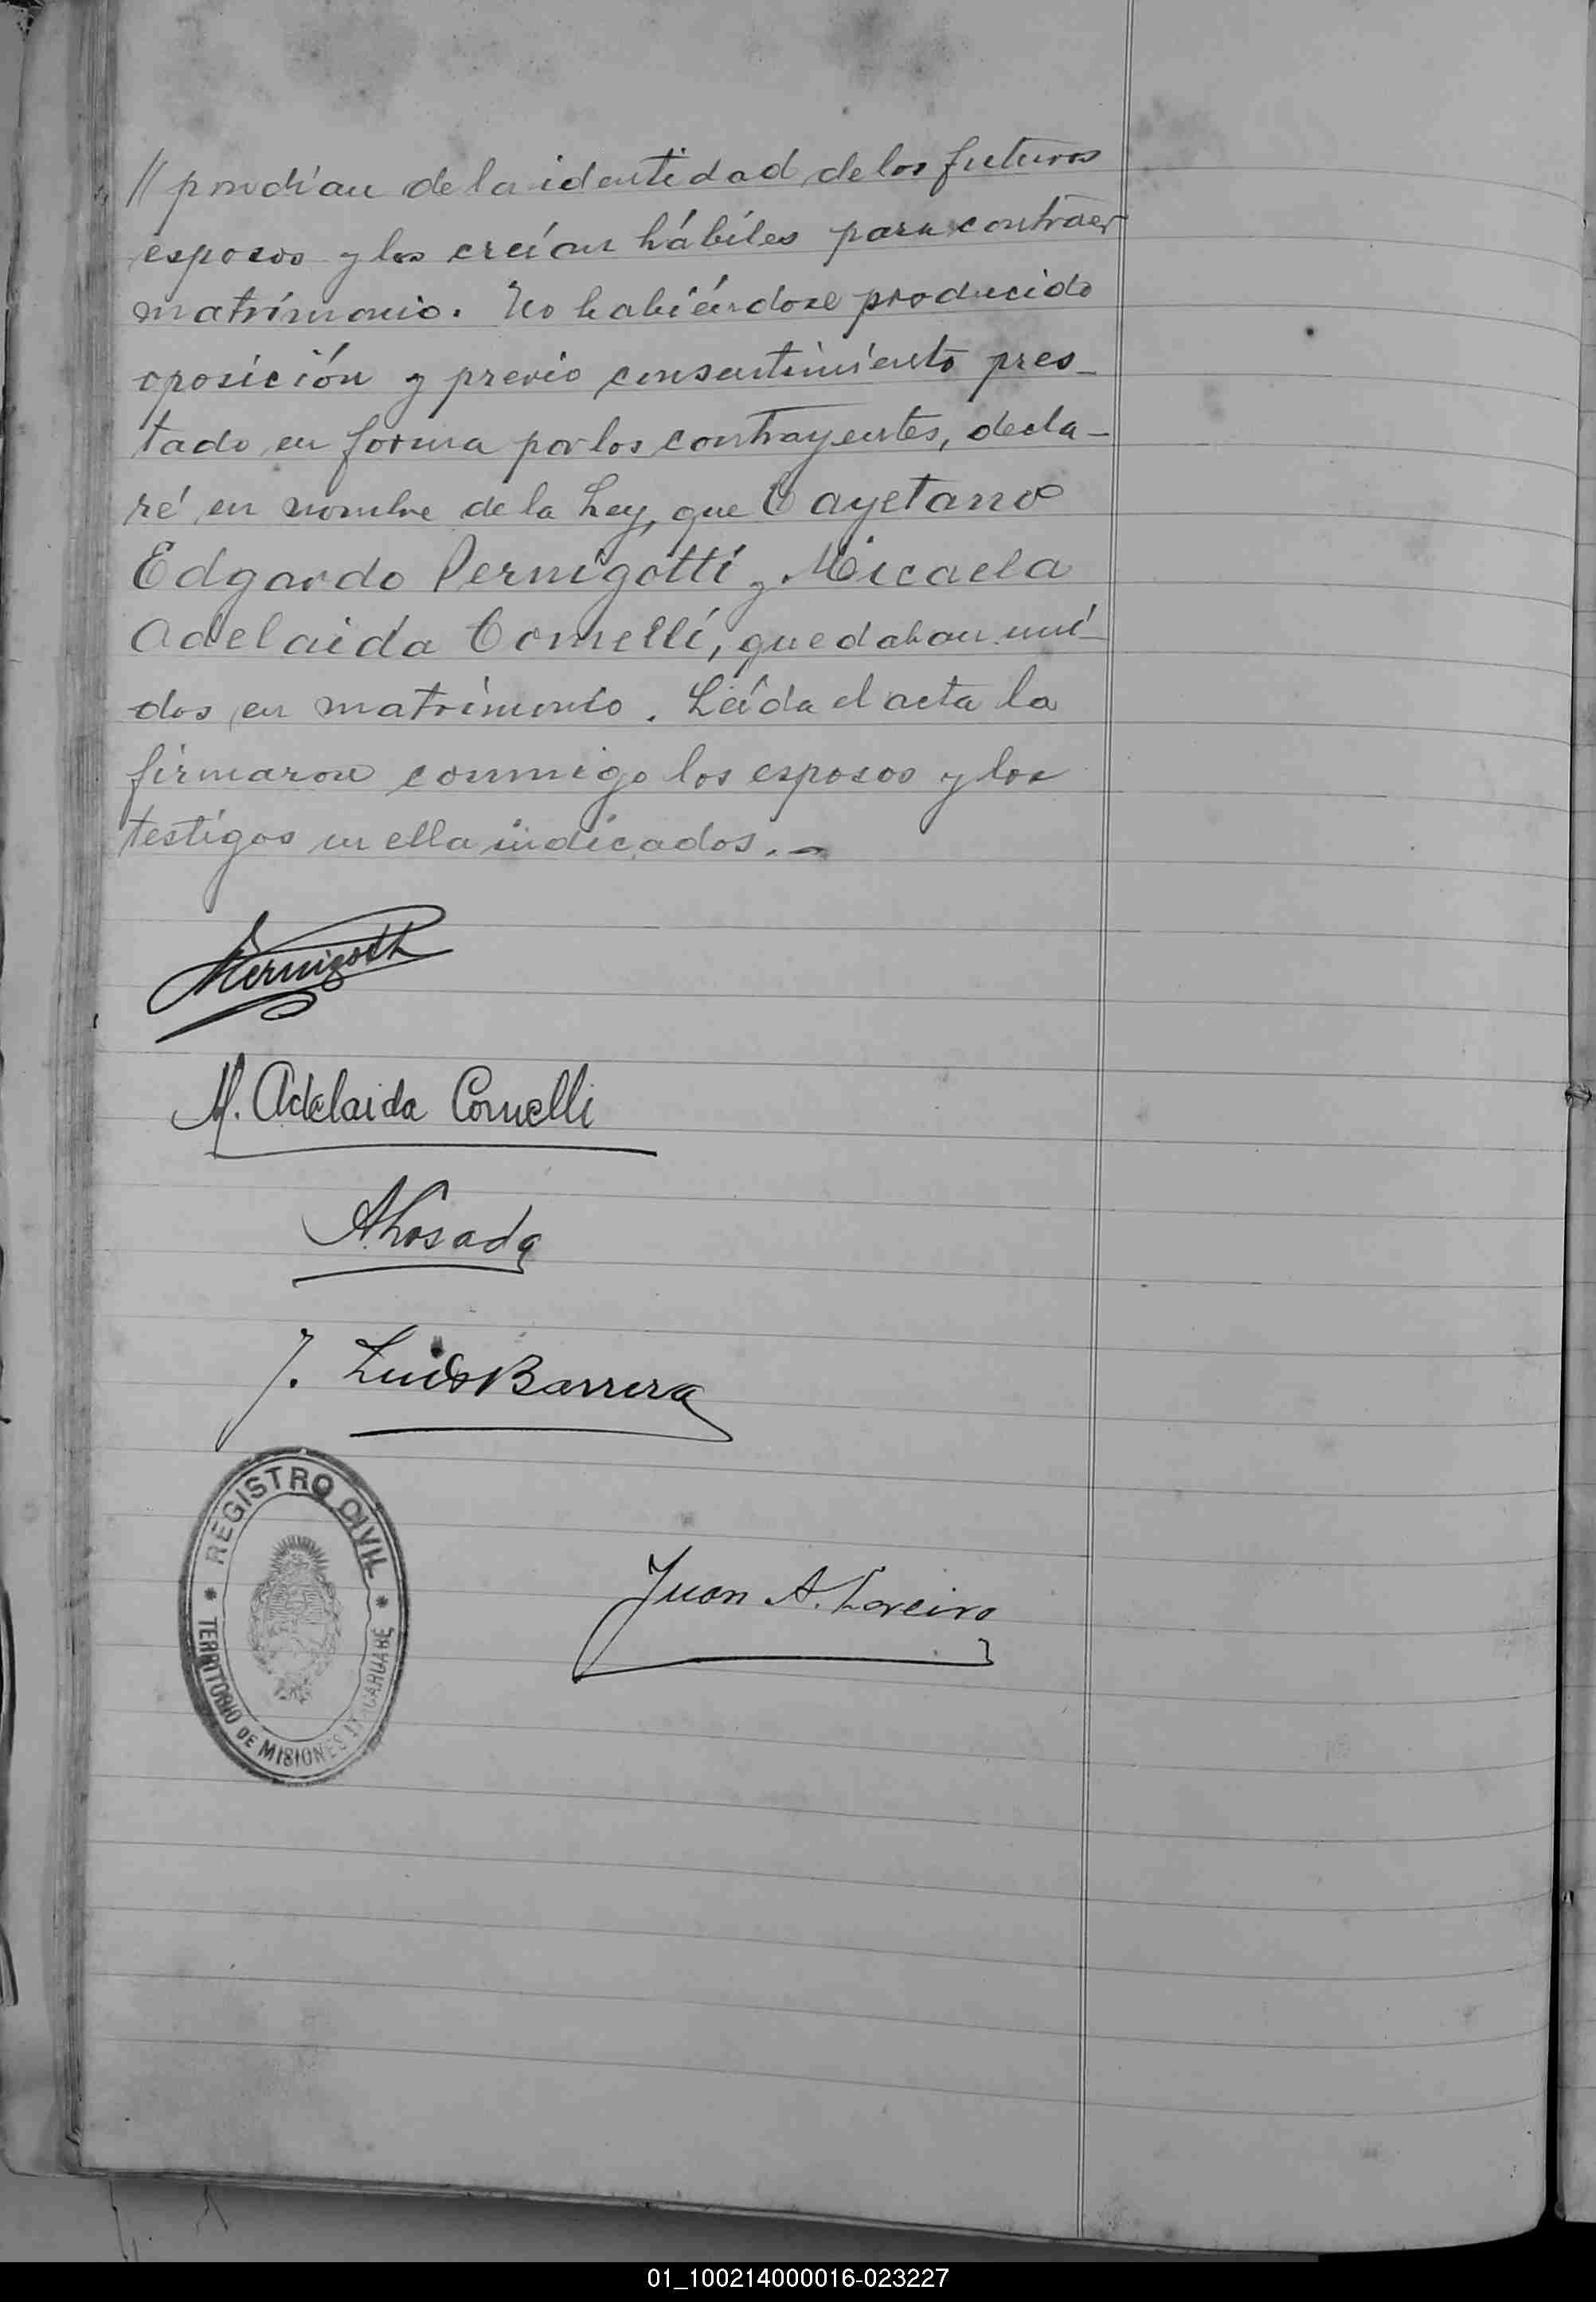 // pondían de la identidad de los futuros
esposos y los creían hábiles para contraer
matrimonio. No habiéndose producido
oposición y previo consentimiento pres-
tado en forma por los contrayentes, decla-
ré en nombre de la Ley, que Cayetano
Edgardo Pernigotti y Micaela
Adelaida Comelli, quedaban uni-
dos en matrimonio. Leída el acta la
firmaron conmigo los esposos y los
testigos en ella indicados.-
Pernigotti
M. Adelaida Comelli
J. Luis Barrera
REGISTRO CIVIL
Juan A. Loreiro
TERRITORIO DE MISIONES
01_100214000016-023227